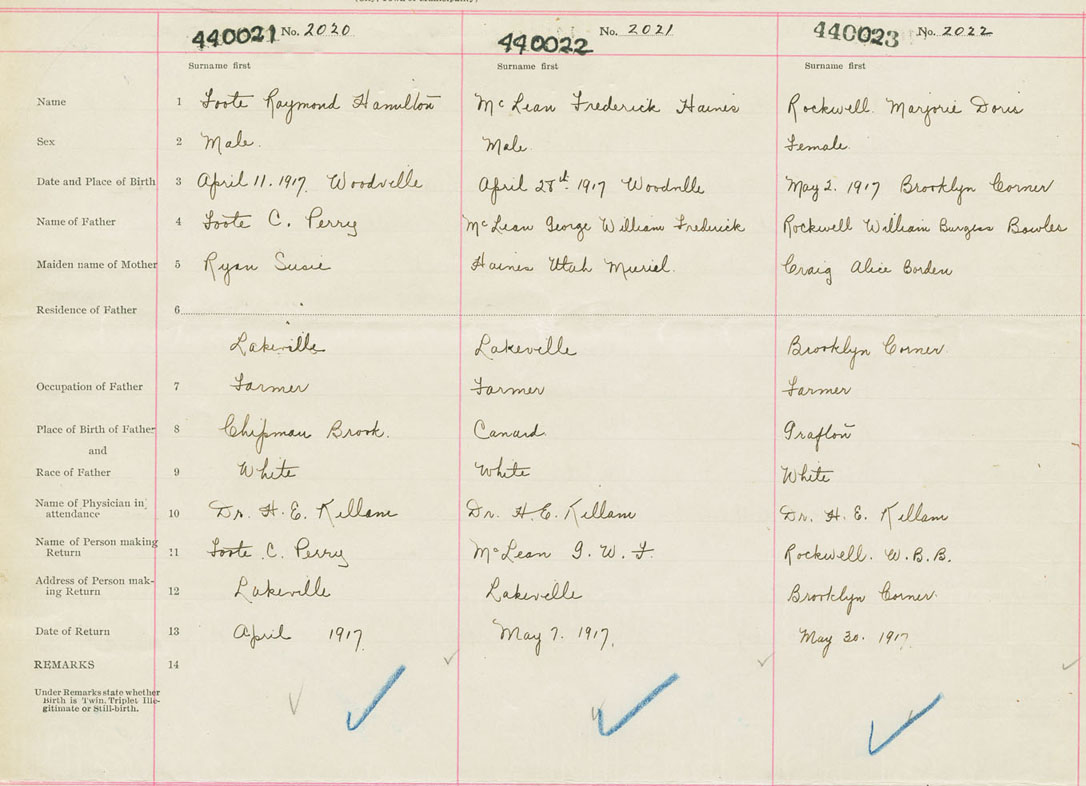 440021 No. 2020 440022 No. 2021 440023 No. 2022
Surname first Surname first Surname first
Name 1 Foote Raymond Hamilton McLean Frederick Haines Rockwell Marjorie Doris
Sex 2 Male. Male Female
Date and Place of Birth 3 April 11. 1917. Woodville April 28th 1917 Woodville May 2. 1917 Brooklyn Corner
Name of Father 4 Foote C. Perry McLean George William Frederick Rockwell William Burgess Bowles
Maiden name of Mother 5 Ryan Susie Haines Utah Muriel. Craig Alice Borden
Residence of Father 6
Lakeville Lakeville Brooklyn Corner
Occupation of Father 7 Farmer Farmer Farmer
Place of Birth of Father 8 Chipman Brook. Canard. Grafton
and
Race of Father 9 White White White
Name of Physician in
attendance 10 Dr. H. E. Killam Dr. H. E. Killam Dr. H. E. Killam
Name of Person making
Return 11 Foote C. Perry McLean G. W. F. Rockwell. W. B. B.
Address of Person mak-
ing Return 12 Lakeville Lakeville Brooklyn Corner
Date of Return 13 April 1917. May 7. 1917. May 30. 1917.
REMARKS 14
Under Remarks state whether
Birth is Twin, Triplet Ille-
gitimate or Still-birth.